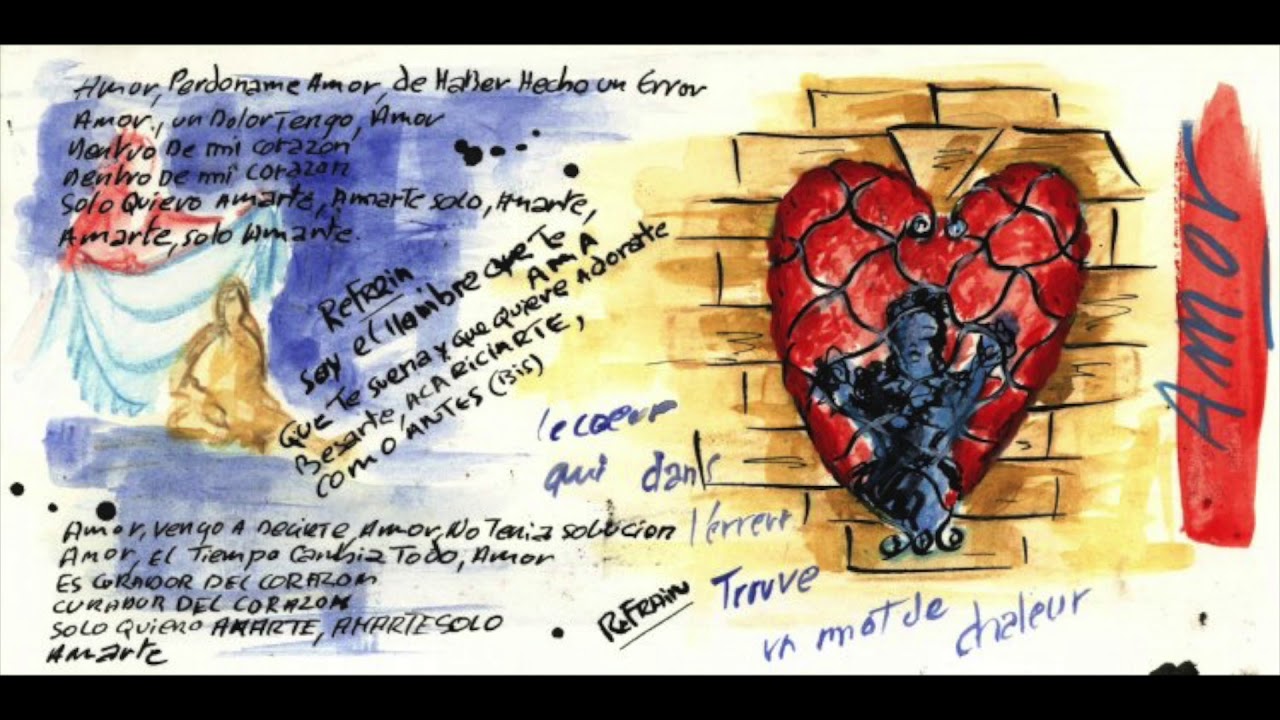 Amor, Perdoname Amor, de Haber Hecho un Error
Amor, un Dolor Tengo, Amor
Dentro De mi corazon
Dentro De mi corazon
Solo Quiero Amarte, Amarte solo, Amarte,
Amarte, solo Amarte.
ReFrain
Soy el Hombre que Te
AMA
Que Te suena y que quiere Adorarte
Besarte, ACARICIARTE,
COMO ANTES (Bis)
le coeur
qui dans
l'erreur
Trouve
un mot de
chaleur
Amor, vengo A Decirte, Amor, No Tenia solucion
Amor, el Tiempo Cambia Todo, Amor
ES CURADOR DEL CORAZON
CURADOR DEL CORAZON
SOLO QUIERO AMARTE, AMARTE SOLO
Amarte
ReFRAIN
Amor